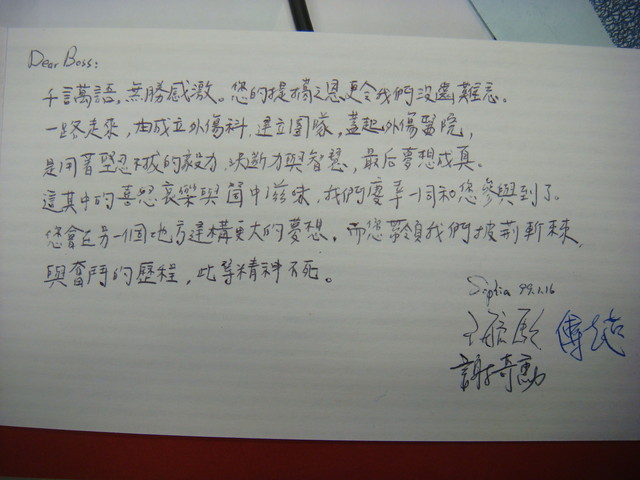 Dear Boss:
千言萬語，無勝感激。您的提攜之恩更令我們沒齒難忘。
一路走來，由成立外傷科，建立團隊，蓋起外傷醫院，
是用著堅忍不拔的毅力、決斷力與智慧，最后夢想成真。
這其中的喜怒哀樂與箇中滋味，我們慶幸一同和您參與到了。
您會在另一個地方建構更大的夢想，而您帶領我們披荊斬棘，
與奮鬥的歷程，此等精神不死。
99.1.16
傅
謝奇勳